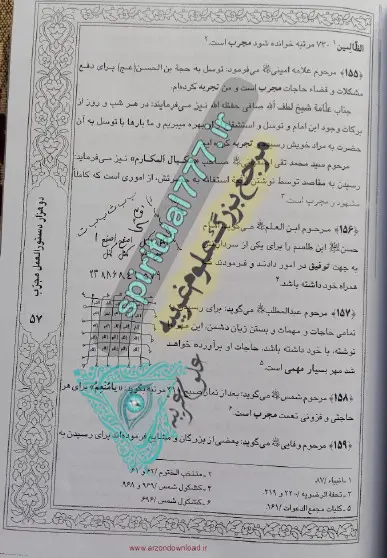 الظّالِمین»¹ ۷۳۰ مرتبه خوانده شود مجرب است.²
«۱۵۵» مرحوم علامه امینی می‌فرمود: توسل به حجة بن الحسن(عج) برای دفع
مشکلات و قضاء حاجات مجرب است و تجربه کرده‌ام.
جناب علامة شیخ لطف الله صافی حفظه الله نیز می‌فرمایند: در هر شب و روز از
برکات وجود این امام و توسل و استغاثه بهره میبریم و ما بارها با توسل به آن
حضرت به مراد خویش رسیده تجربه کرده
مرحوم سید محمد تقی صاحب «مکیال المکارم» نیز می‌فرماید:
رسیدن به مقاصد توسط نوشتن استغاثه به حضرتش، از اموری است که کاملاً
مشهود و مجرب است.³
«۱۵۶» مرحوم ابن العلم می‌گوید:
حسن این طلسم را برای یکی از سرداران
به جهت توفیق در امور دادند و فرمودند
همراه خود داشته باشد.⁴
«۱۵۷» مرحوم عبدالمطلب می‌گوید: برای رسیدن
تمامی حاجات و مهمات و بستن زبان دشمن، این مهر
نوشته، با خود داشته باشد. حاجات او برآورده خواهد
شد مهر بسیار مهمی است.⁵
«۱۵۸» مرحوم شمس می‌گوید: بعد از نماز صبح ۲۱ مرتبه بگوید: «یا مُنعِمُ» برای هر
حاجتی و فزونی نعمت مجرب است.⁶
«۱۵۹» مرحوم وفایی می‌گوید: بعضی از بزرگان و مشایخ فرموده‌اند برای رسیدن به
۱ ـ انبیاء /۸۷
۲ ـ منتخب الختوم /۶۲ و ۶۱
۳ ـ تحفة الرضویه /۲۲۰ و ۲۱۹
۴ ـ کشکول شمس /۹۶۹ و ۹۶۸
۵ ـ کلیات مجمع الدعوات /۱۶۱
۶ ـ کشکول شمس /۶۹۶
دو هزار دستورالعمل مجرّب
۵۷
spiritual777.ir
مرجع بزرگ علوم غریبه
علوم غریبه
www.arzondownload.ir